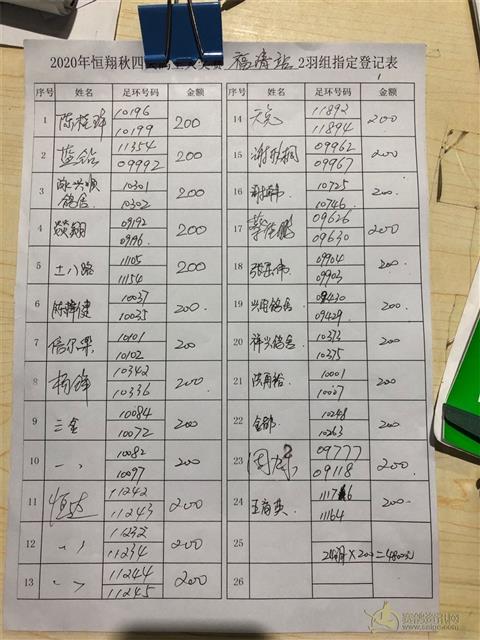 2020年恒翔秋四 福清站 2羽组指定登记表
序号 姓名 足环号码 金额 序号 姓名 足环号码 金额
1 10196 10199 200
2 蓝 11354 09992 200
3 兴顺鸽舍 10301 10302 200
4 燚翔 09192 09196 200
5 土八路 11105 11154 200
6 10037 10035 200
7 倍尔乐 10101 10102 200
8 杨锋 10342 10336 200
9 三金 10084 10072 200
10 〃 10082 10097 200
11 恒达 11242 11243 200
12 〃 11232 11234 200
13 〃 11244 11245 200
14 11892 11894 200
15 谢 桐 09962 09967 200
16 10725 10746 200
17 蔡 鹏 09626 09630 200
18 张 伟 09904 09903 200
19 兴用鸽舍 09430 09429 200
20 祥兴鸽舍 10373 10375 200
21 10001 10007 200
22 金郎 10248 10263 200
23 09777 09118 200
24 王商英 11164 200
25 24 × 200 = 4800元
26
赛鸽资讯网